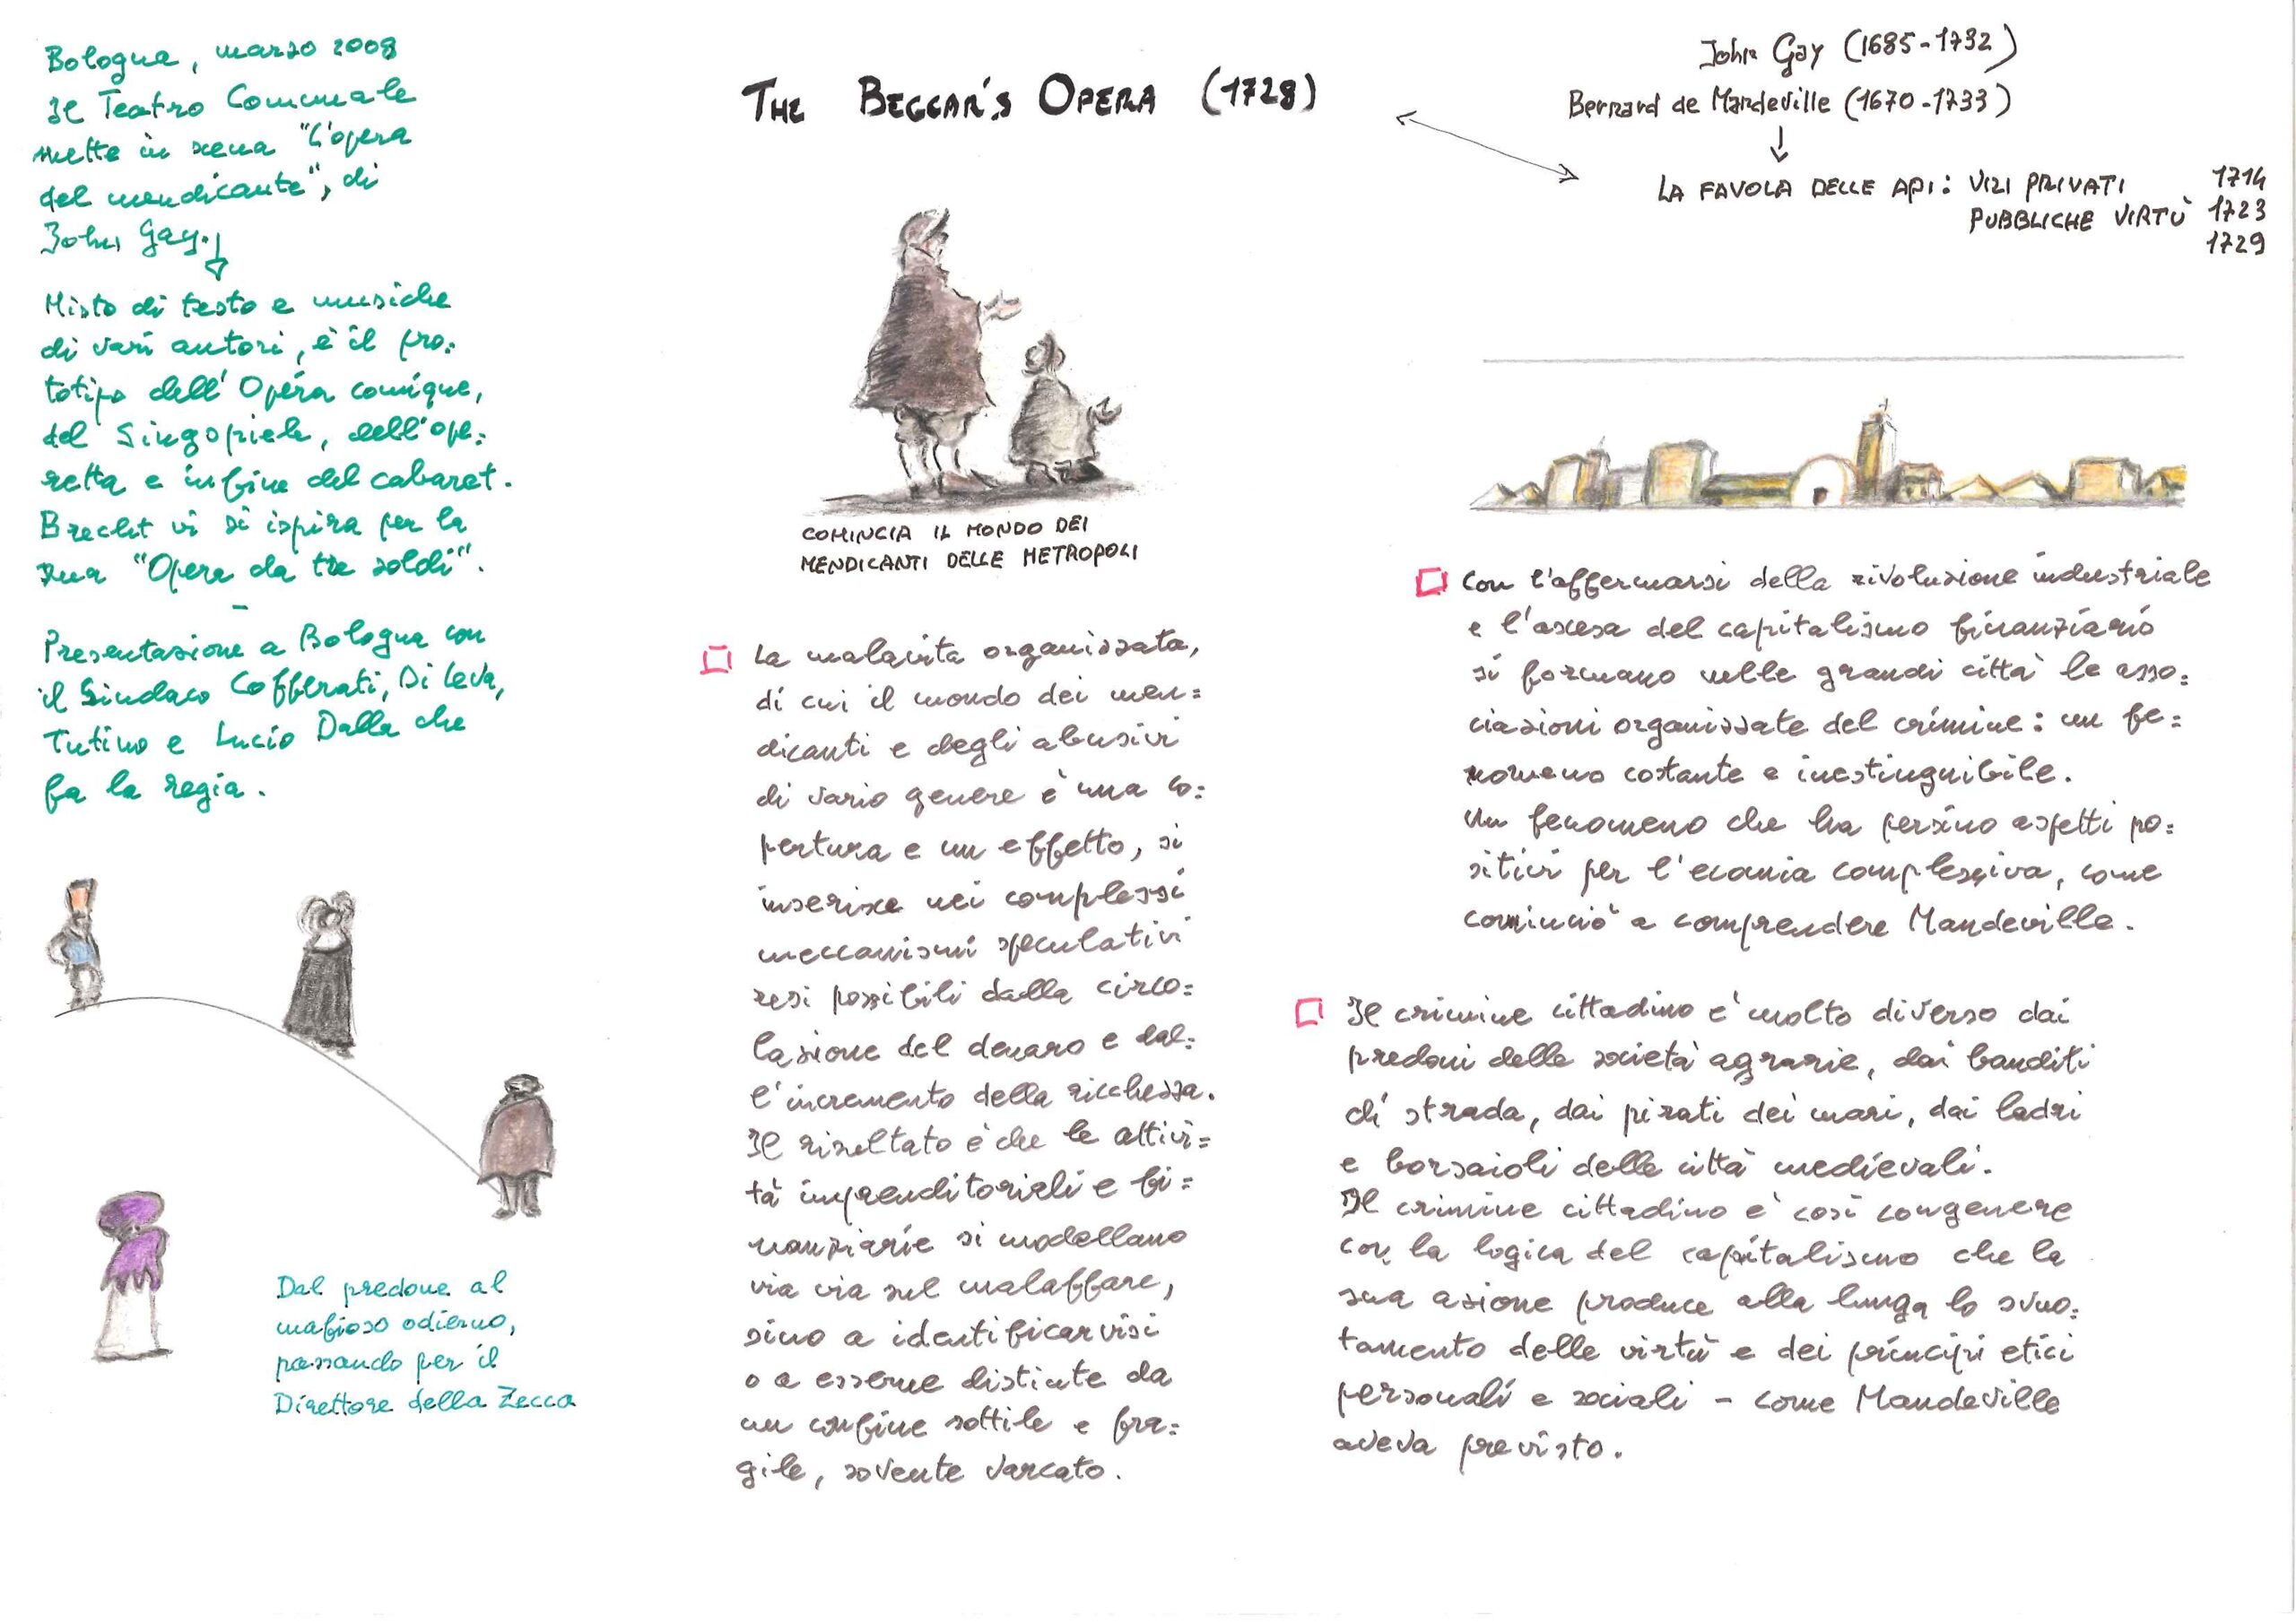 Bologna, marzo 2008
Il Teatro Comunale
mette in scena "L'opera
del mendicante", di
John Gay.
Misto di testo e musiche
di vari autori, è il pro=
totipo dell'Opéra comique,
del Singspiele, dell'ope=
retta e infine del cabaret.
Brecht vi si ispira per la
sua "Opera da tre soldi".
-
Presentazione a Bologna con
il Sindaco Cofferati, Di Leva,
Tutino e Lucio Dalla che
fa la regia.
Dal predone al
mafioso odierno,
passando per il
Direttore della Zecca
THE BEGGAR'S OPERA (1728)
COMINCIA IL MONDO DEI
MENDICANTI DELLE METROPOLI
La malavita organizzata,
di cui il mondo dei men=
dicanti e degli abusivi
di vario genere è una co=
pertura e un effetto, si
inserisce nei complessi
meccanismi speculativi
resi possibili dalla circo=
lazione del denaro e dal=
l'incremento della ricchezza.
Il risultato è che le attivi=
tà imprenditoriali e fi=
nanziarie si modellano
via via sul malaffare,
sino a identificarvisi
o a esserne distinte da
un confine sottile e fra=
gile, sovente varcato.
John Gay (1685-1732)
Bernard de Mandeville (1670-1733)
LA FAVOLA DELLE API: VIZI PRIVATI 1714
PUBBLICHE VIRTÙ 1723
1729
Con l'affermarsi della rivoluzione industriale
e l'ascesa del capitalismo finanziario
si formano nelle grandi città le asso=
ciazioni organizzate del crimine: un fe=
nomeno costante e inestinguibile.
Un fenomeno che ha persino aspetti po=
sitivi per l'ecomia complessiva, come
cominciò a comprendere Mandeville.
Il crimine cittadino è molto diverso dai
predoni delle società agrarie, dai banditi
di strada, dai pirati dei mari, dai ladri
e borsaioli delle città medievali.
Il crimine cittadino è così congenere
con la logica del capitalismo che la
sua azione produce alla lunga lo svuo=
tamento delle virtù e dei principi etici
personali e sociali - come Mandeville
aveva previsto.